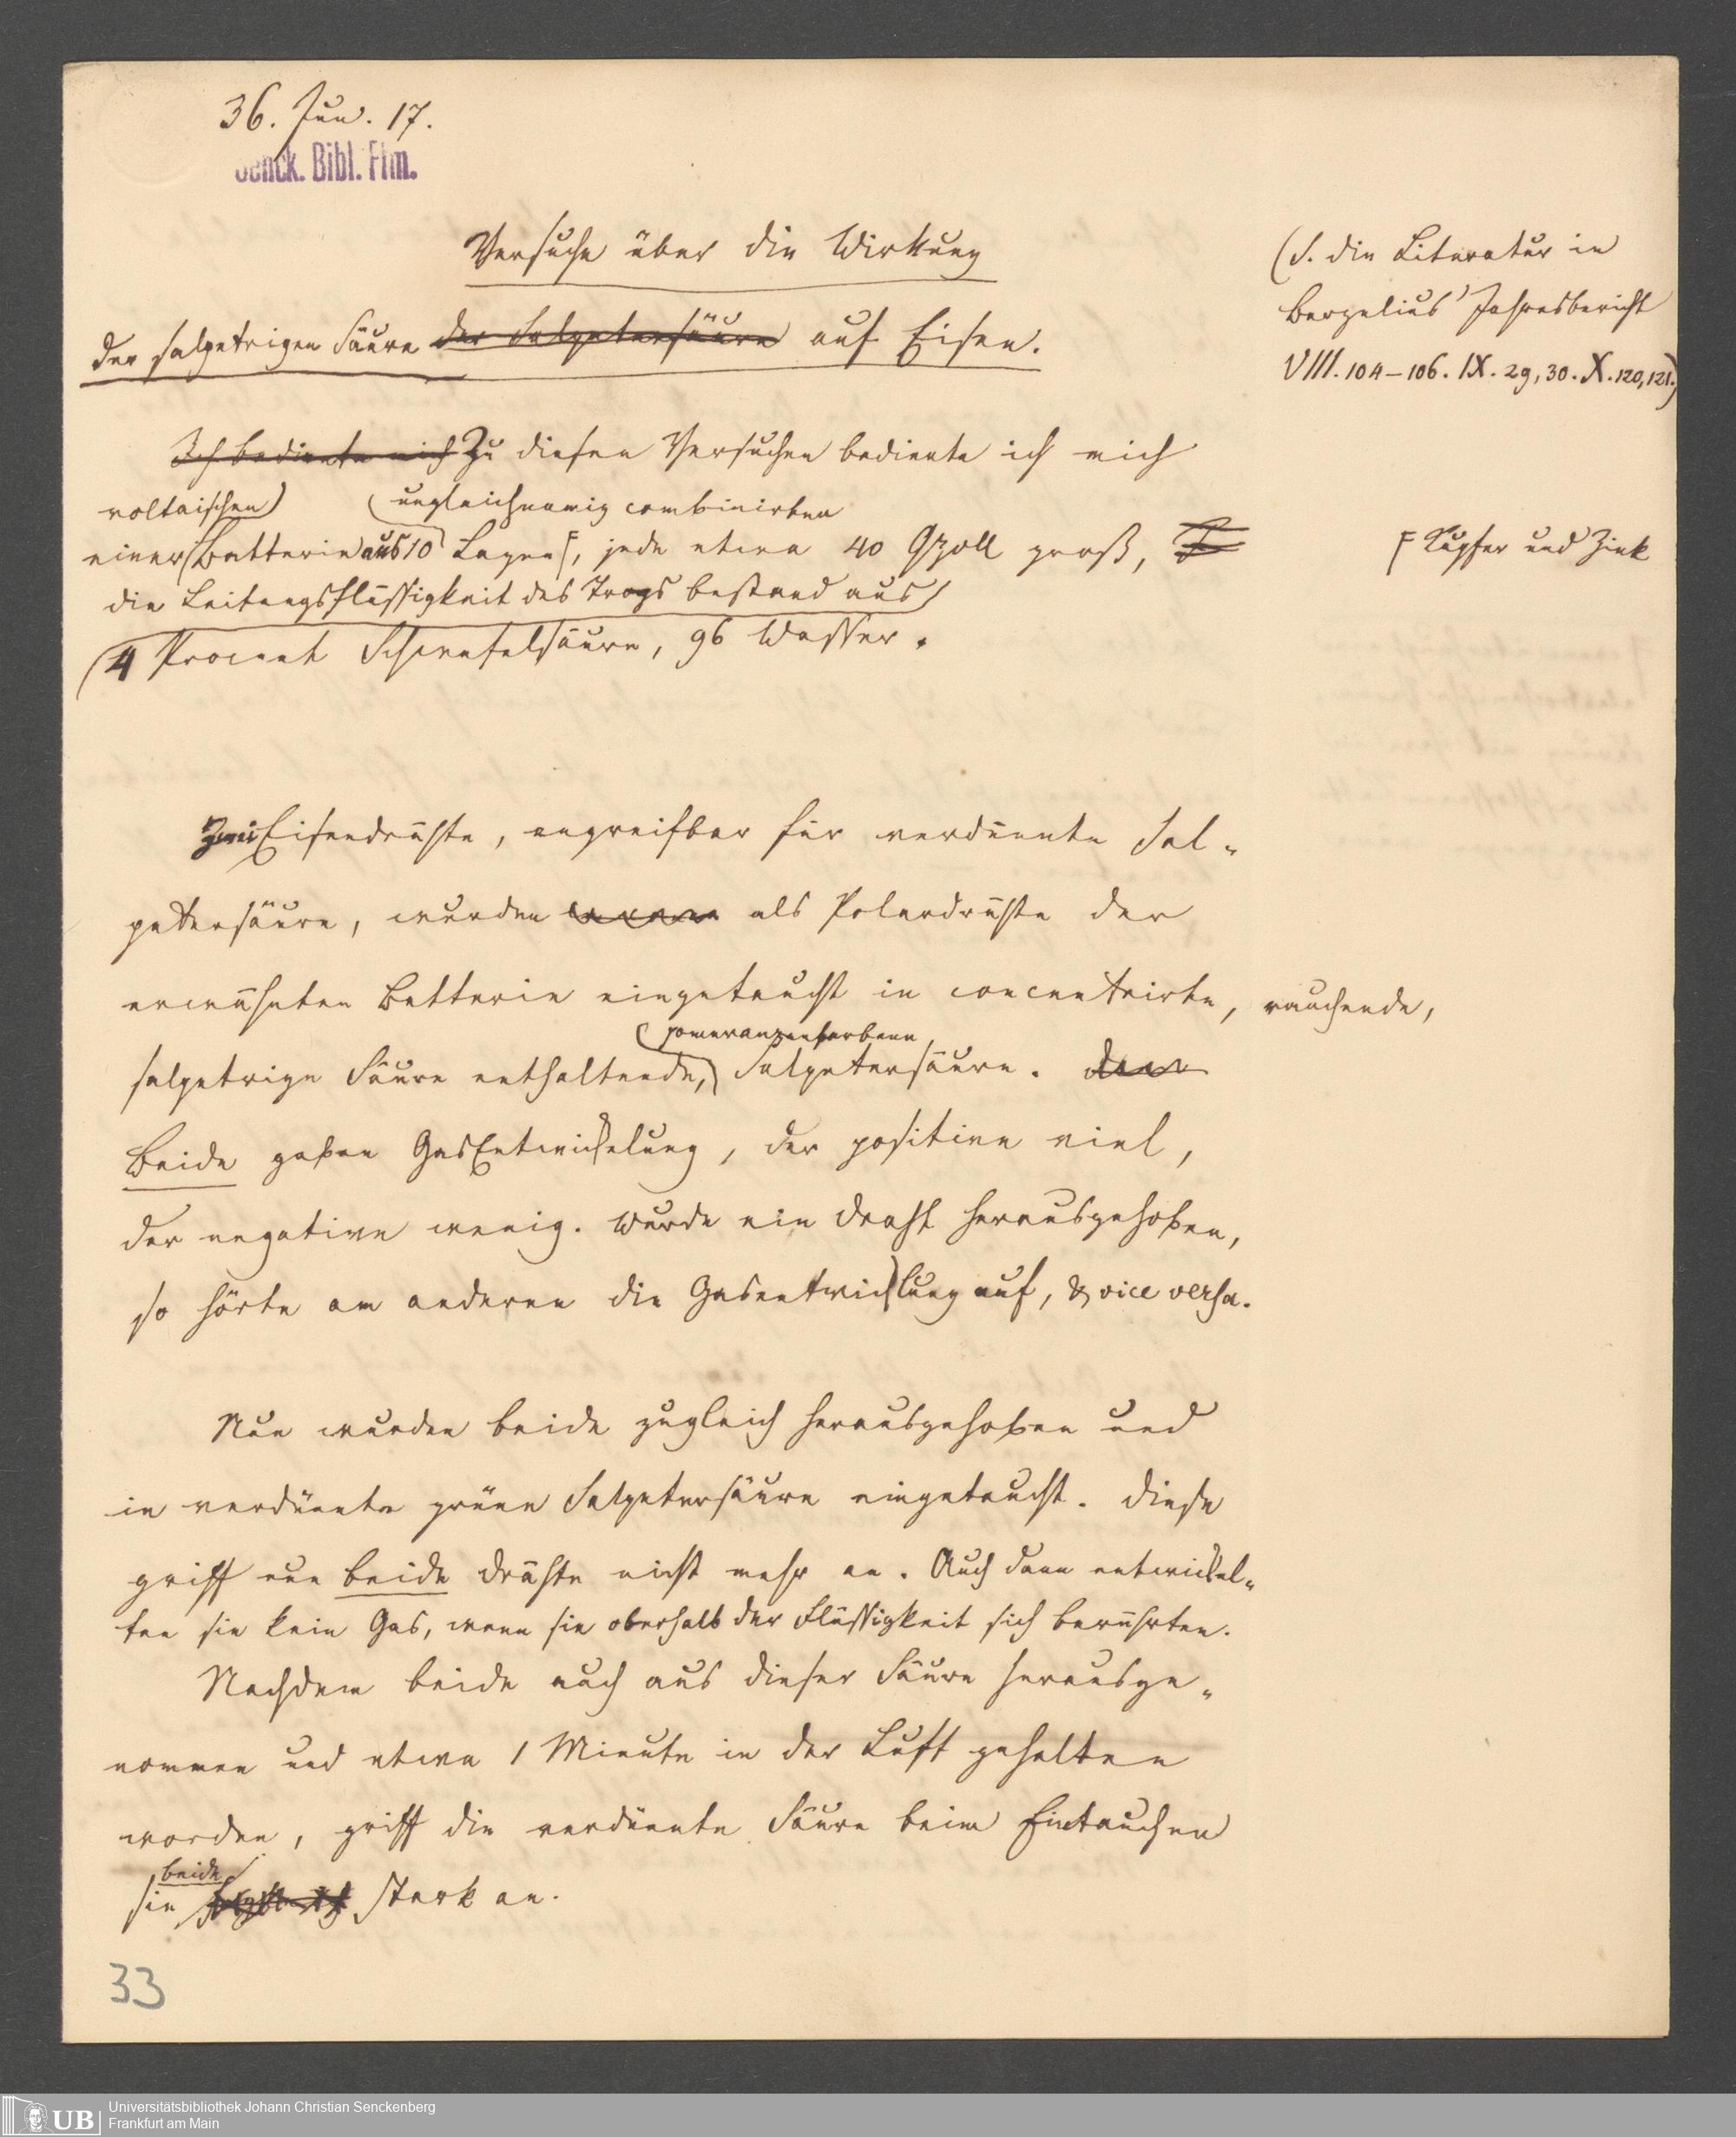 36. Jun. 17.
Senck. Bibl. Ffm.
Versuche über die Wirkung
der salpetrigen Säure der Salpetersäure auf Eisen.
(S. die Literatur in
Berzelius' Jahresbericht
VIII. 104–106. IX. 29, 30. X. 120, 121.)
Ich bediente mich Zu diesen Versuchen bediente ich mich
voltaischen ungleichnamig combinirten
einer Batterie aus 10 Lagen F, jede etwa 40 QZoll groß,
F Kupfer und Zink
die Leitungsflüssigkeit des Trogs bestand aus
4 Procent Schwefelsäure, 96 Wasser.
Zwei Eisendrähte, angreifbar für verdünnte Sal-
petersäure, wurden waren als Polardrähte der
erwähnten Batterie eingetaucht in concentrirte, rauchende,
pomeranzenfarbene
salpetrige Säure enthaltende, Salpetersäure. Der
Beide gaben GasEntwickelung, der positive viel,
der negative wenig. Wurde ein Draht herausgehoben,
so hörte am anderen die Gasentwicklung auf, & vice versa.
Nun wurden beide zugleich herausgehoben und
in verdünnte grüne Salpetersäure eingetaucht. Diese
griff nun beide Drähte nicht mehr an. Auch dann entwickel-
ten sie kein Gas, wenn sie oberhalb der Flüssigkeit sich berührten.
Nachdem beide auch aus dieser Säure herausge-
nommen und etwa 1 Minute in der Luft gehalten
worden, griff die verdünnte Säure beim Eintauchen
beide
sie stark an.
33
UB
Universitätsbibliothek Johann Christian Senckenberg
Frankfurt am Main